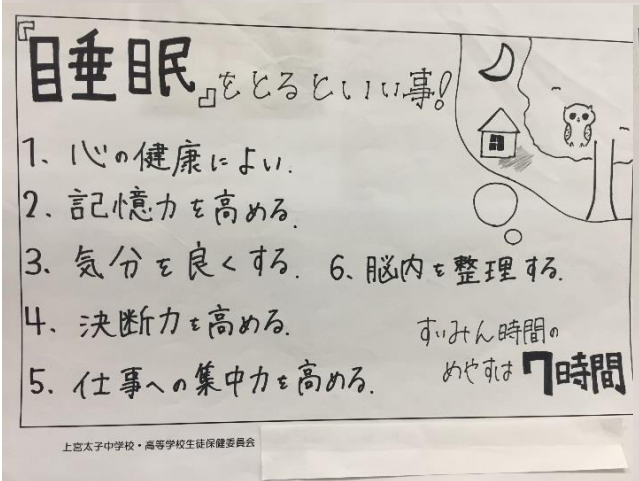 『睡眠』をとるといい事!
1、心の健康によい.
2、記憶力を高める.
3、気分を良くする.
6、脳内を整理する.
4、決断力を高める.
5、仕事への集中力を高める.
すいみん時間の
めやすは7時間
上宮太子中学校・高等学校生徒保健委員会